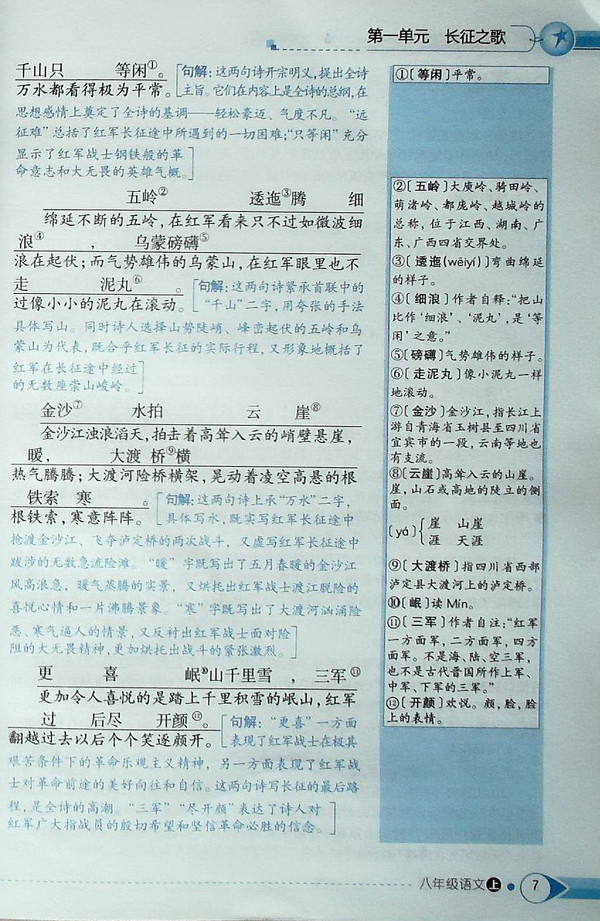 第一单元 长征之歌
千山只 等闲①。
万水都看得极为平常。
[句解:这两句诗开宗明义,提出全诗
主旨。它们在内容上是全诗的总纲,在
思想感情上奠定了全诗的基调——轻松豪迈、气度不凡。“远
征难”总括了红军长征途中所遇到的一切困难;“只等闲”充分
显示了红军战士钢铁般的革
命意志和大无畏的英雄气概。]
五岭② 逶迤③腾 细
绵延不断的五岭,在红军看来只不过如微波细
浪④ , 乌蒙磅礴⑤
浪在起伏;而气势雄伟的乌蒙山,在红军眼里也不
走 泥丸⑥ 。
过像小小的泥丸在滚动。
[句解:这两句诗紧承首联中的
“千山”二字,用夸张的手法
具体写山。同时诗人选择山势陡峭、峰峦起伏的五岭和乌
蒙山为代表,既合乎红军长征的实际行程,又形象地概括了
红军在长征途中经过
的无数座崇山峻岭。]
金沙⑦ 水拍 云 崖⑧
金沙江浊浪滔天,拍击着高耸入云的峭壁悬崖,
暖, 大渡 桥⑨横
热气腾腾;大渡河险桥横架,晃动着凌空高悬的根
铁索 寒 。
根铁索,寒意阵阵。
[句解:这两句诗上承“万水”二字,
具体写水,既实写红军长征途中
抢渡金沙江、飞夺泸定桥的两次战斗,又虚写红军长征途中
跋涉的无数急流险滩。“暖”字既写出了五月春暖的金沙江
风高浪急,暖气蒸腾的实景,又烘托出红军战士渡江脱险的
喜悦心情和一片沸腾景象。“寒”字既写出了大渡河汹涌险
恶、寒气逼人的情景,又反衬出红军战士面对险
阻的大无畏精神,更加烘托出战斗的紧张激烈。]
更 喜 岷⑩山千里雪 ,三军⑪
更加令人喜悦的是踏上千里积雪的岷山,红军
过 后尽 开颜⑫。
翻越过去以后个个笑逐颜开。
[句解:“更喜”一方面
表现了红军战士在极其
艰苦条件下的革命乐观主义精神,另一方面表现了红军战
士对革命前途的美好向往和自信。这两句诗写长征的最后路
程,是全诗的高潮。“三军”“尽开颜”表达了诗人对
红军广大指战员的殷切希望和坚信革命必胜的信念。]
①〔等闲〕平常。
②〔五岭〕大庾岭、骑田岭、
萌渚岭、都庞岭、越城岭的
总称,位于江西、湖南、广
东、广西四省交界处。
③〔逶迤(wēiyí)〕弯曲绵延
的样子。
④〔细浪〕作者自释:“把山
比作‘细浪’、‘泥丸’,是‘等
闲’之意。”
⑤〔磅礴〕气势雄伟的样子。
⑥〔走泥丸〕像小泥丸一样
地滚动。
⑦〔金沙〕金沙江,指长江上
游自青海省玉树县至四川省
宜宾市的一段,云南等地也
有支流。
⑧〔云崖〕高耸入云的山崖。
崖,山石或高地的陡立的侧
面。
(yá){崖 山崖
涯 天涯
⑨〔大渡桥〕指四川省西部
泸定县大渡河上的泸定桥。
⑩〔岷〕读 Mín。
⑪〔三军〕作者自注:“红军
一方面军,二方面军,四方
面军。不是海、陆、空三军,
也不是古代晋国所作上军、
中军、下军的三军。”
⑫〔开颜〕欢悦。颜,脸,脸
上的表情。
八年级语文上 7